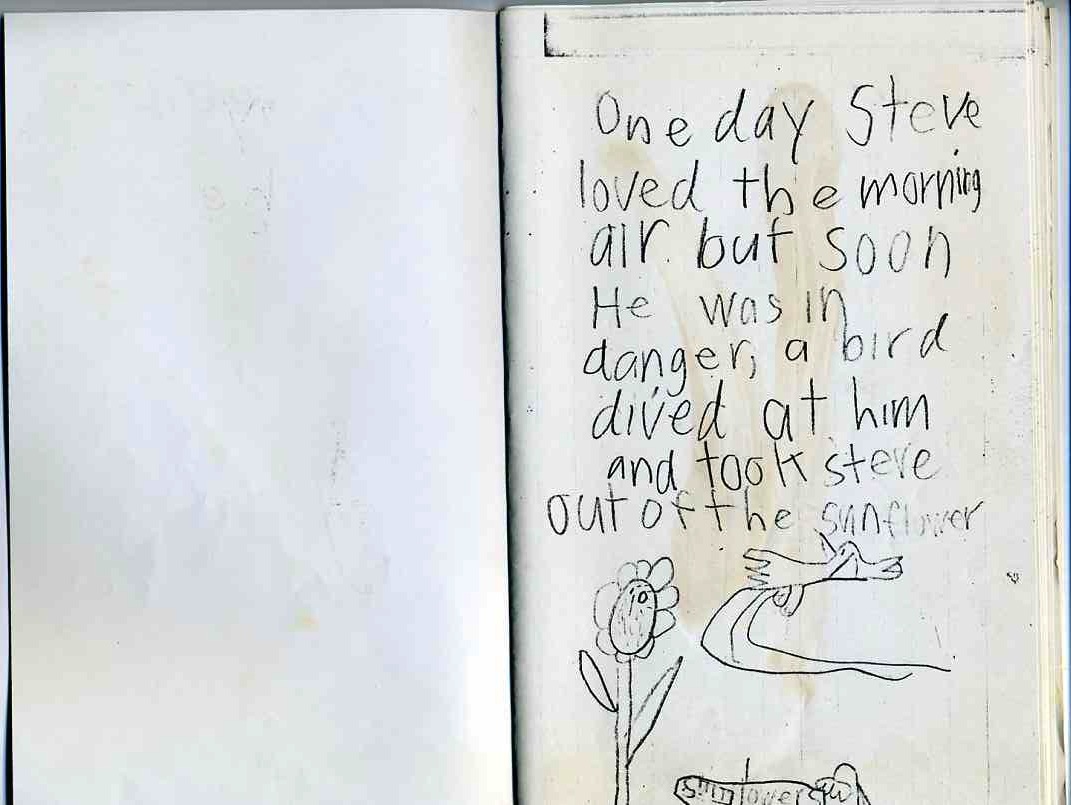 One day Steve
loved the morning
air but soon
He was in
danger, a bird
dived at him
and took steve
out of the sunflower
sunflower